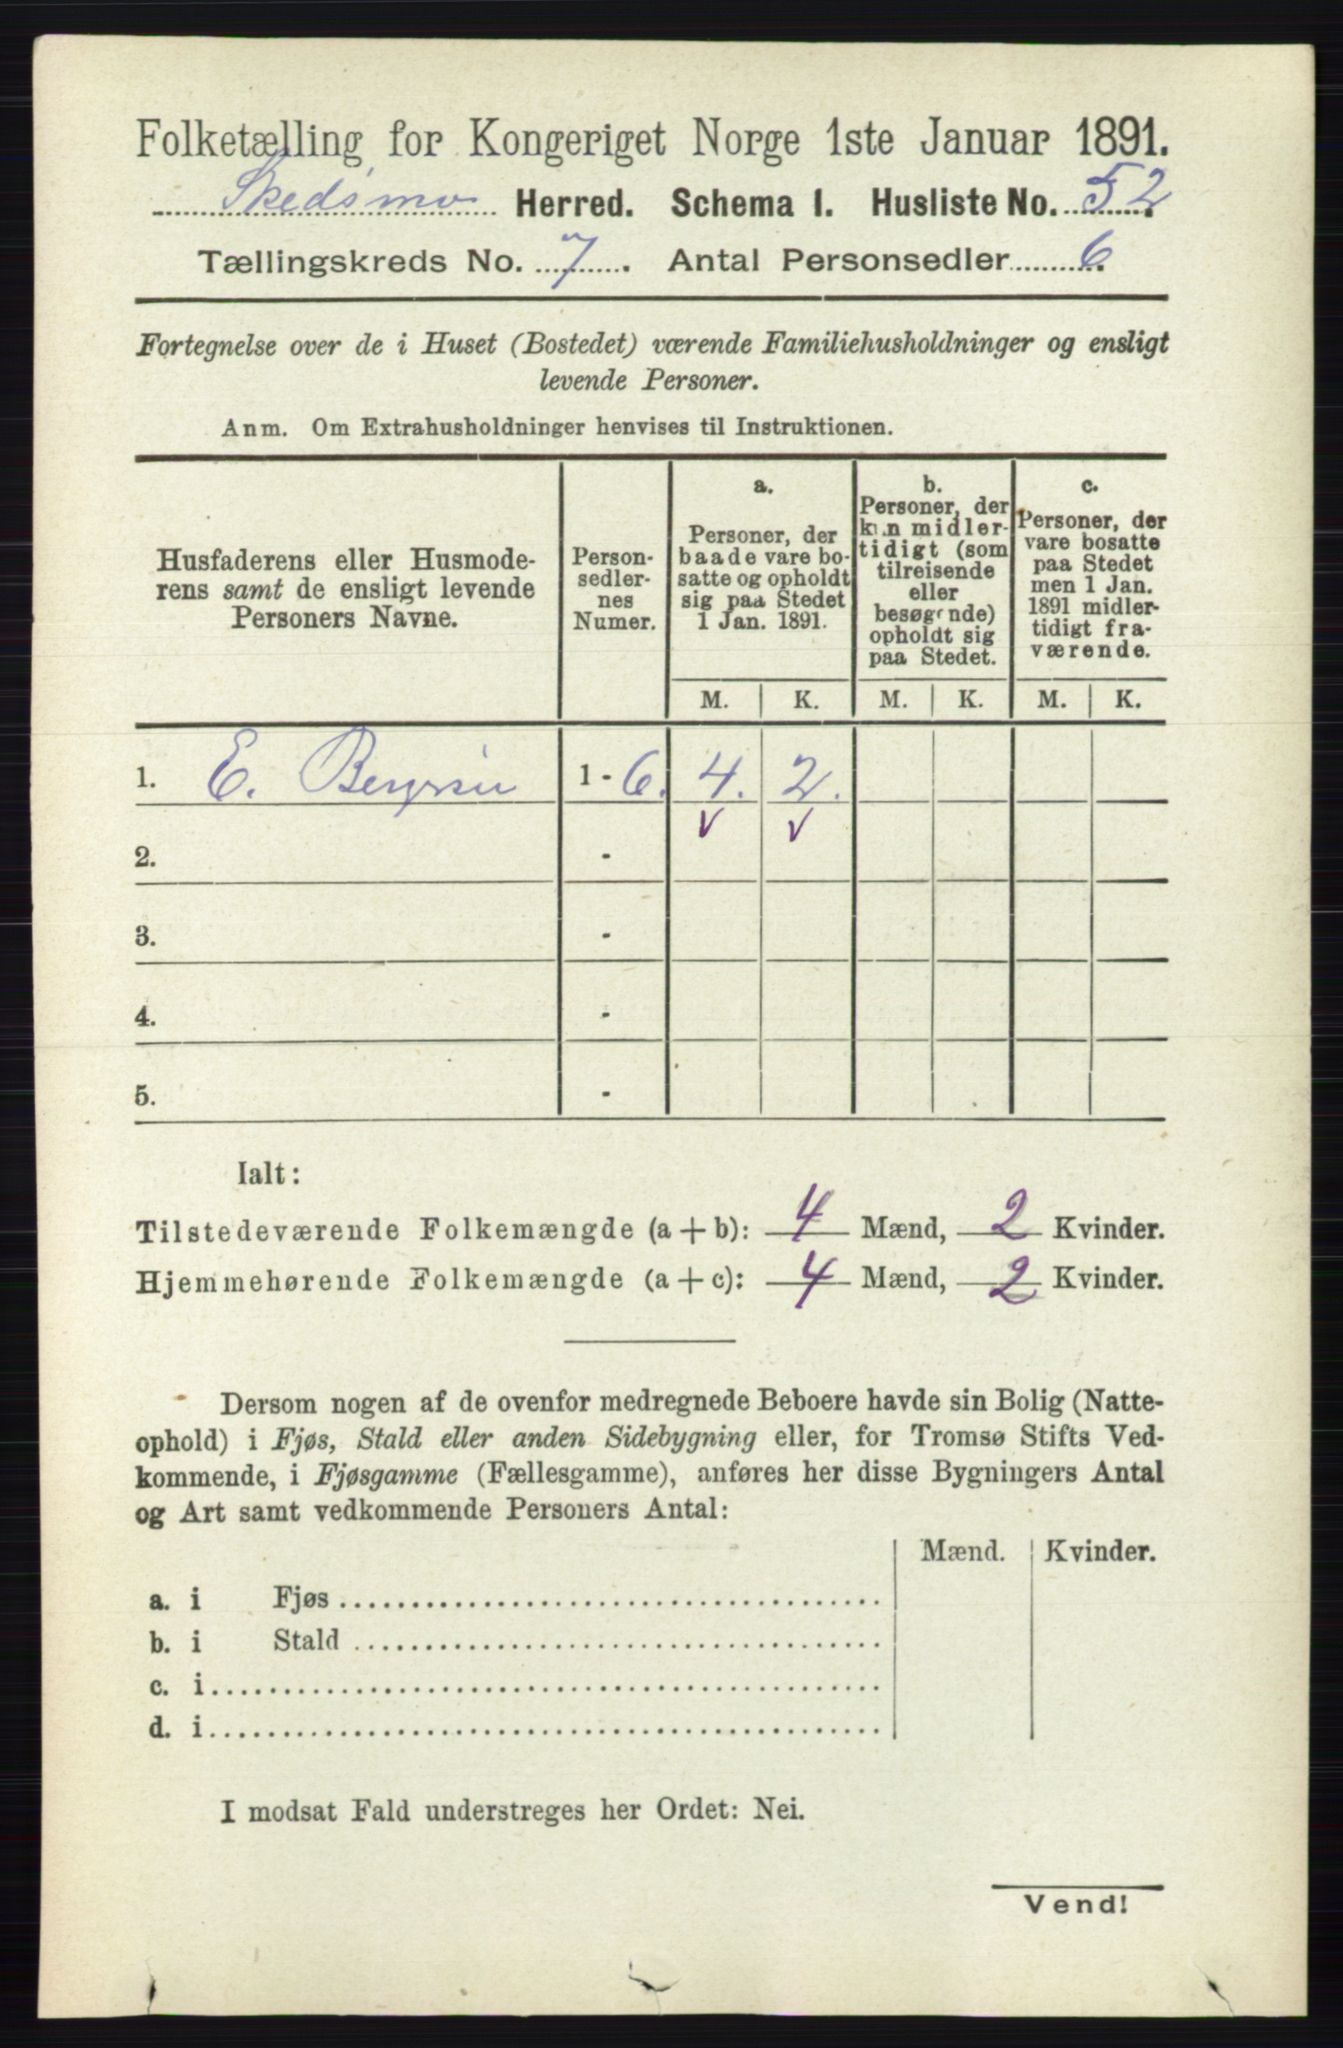 Folketælling for Kongeriget Norge 1ste Januar 1891.
Skedsmo Herred. Schema I. Husliste No. 52.
Tællingskreds No. 7. Antal Personsedler 6.
Fortegnelse over de i Huset (Bostedet) værende Familiehusholdninger og ensligt
levende Personer.
Anm. Om Extrahusholdninger henvises til Instruktionen.
Husfaderens eller Husmode-
rens samt de ensligt levende
Personers Navne.
Person-
sedler-
nes
Numer.
a.
Personer, der
baade vare bo-
satte og opholdt
sig paa Stedet
1 Jan. 1891.
b.
Personer, der
kun midler-
tidigt (som
tilreisende
eller
besøgende)
opholdt sig
paa Stedet.
c.
Personer, der
vare bosatte
paa Stedet
men 1 Jan.
1891 midler-
tidigt fra-
værende.
M. K. M. K. M. K.
1. E. 1 - 6. 4. 2.
v v
2. -
3. -
4. -
5. -
Ialt:
Tilstedeværende Folkemængde (a + b): 4 Mænd, 2 Kvinder.
Hjemmehørende Folkemængde (a + c): 4 Mænd, 2 Kvinder.
Dersom nogen af de ovenfor medregnede Beboere havde sin Bolig (Natte-
ophold) i Fjøs, Stald eller anden Sidebygning eller, for Tromsø Stifts Ved-
kommende, i Fjøsgamme (Fællesgamme), anføres her disse Bygningers Antal
og Art samt vedkommende Personers Antal:
Mænd. Kvinder.
a. i Fjøs
b. i Stald
c. i
d. i
I modsat Fald understreges her Ordet: Nei.
Vend!